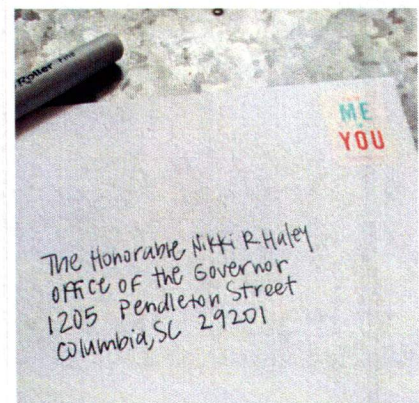 Roller Fine
ME
YOU
The Honorable Nikki R Haley
Office of the Governor
1205 Pendleton Street
Columbia, SC 29201